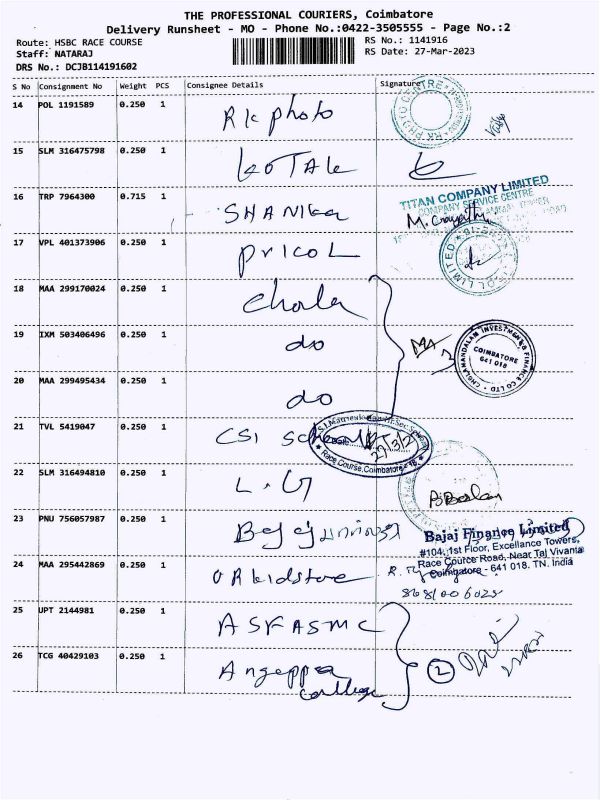 THE PROFESSIONAL COURIERS, Coimbatore
Delivery Runsheet - MO - Phone No.:0422-3505555 - Page No.:2
Route: HSBC RACE COURSE
RS No.: 1141916
Staff: NATARAJ
RS Date: 27-Mar-2023
DRS No.: DCJB114191602
S No Consignment No Weight PCS Consignee Details Signature
14 POL 1191589 0.250 1 RK photo
15 SLM 316475798 0.250 1 KOTAK
16 TRP 7964300 0.715 1 SHANKAR
TITAN COMPANY LIMITED
COMPANY SERVICE CENTRE
17 VPL 401373906 0.250 1 PRICOL
18 MAA 299170024 0.250 1 Chola
19 IXM 503406496 0.250 1 do
CHOLAMANDALAM INVESTMENT & FINANCE CO LTD
COIMBATORE
641 018
20 MAA 299495434 0.250 1 do
21 TVL 5419047 0.250 1 CSI School
27/3/2
Race Course, Coimbatore - 18
22 SLM 316494810 0.250 1 L.G
23 PNU 756057987 0.250 1 Bajaj
Bajaj Finance Limited
#104, 1st Floor, Excellance Towers,
Race Cource Road, Near Taj Vivanta
Coimbatore - 641 018. TN. India
24 MAA 295442869 0.250 1 OR kidstore
25 UPT 2144981 0.250 1
26 TCG 40429103 0.250 1 Angappa
College
2